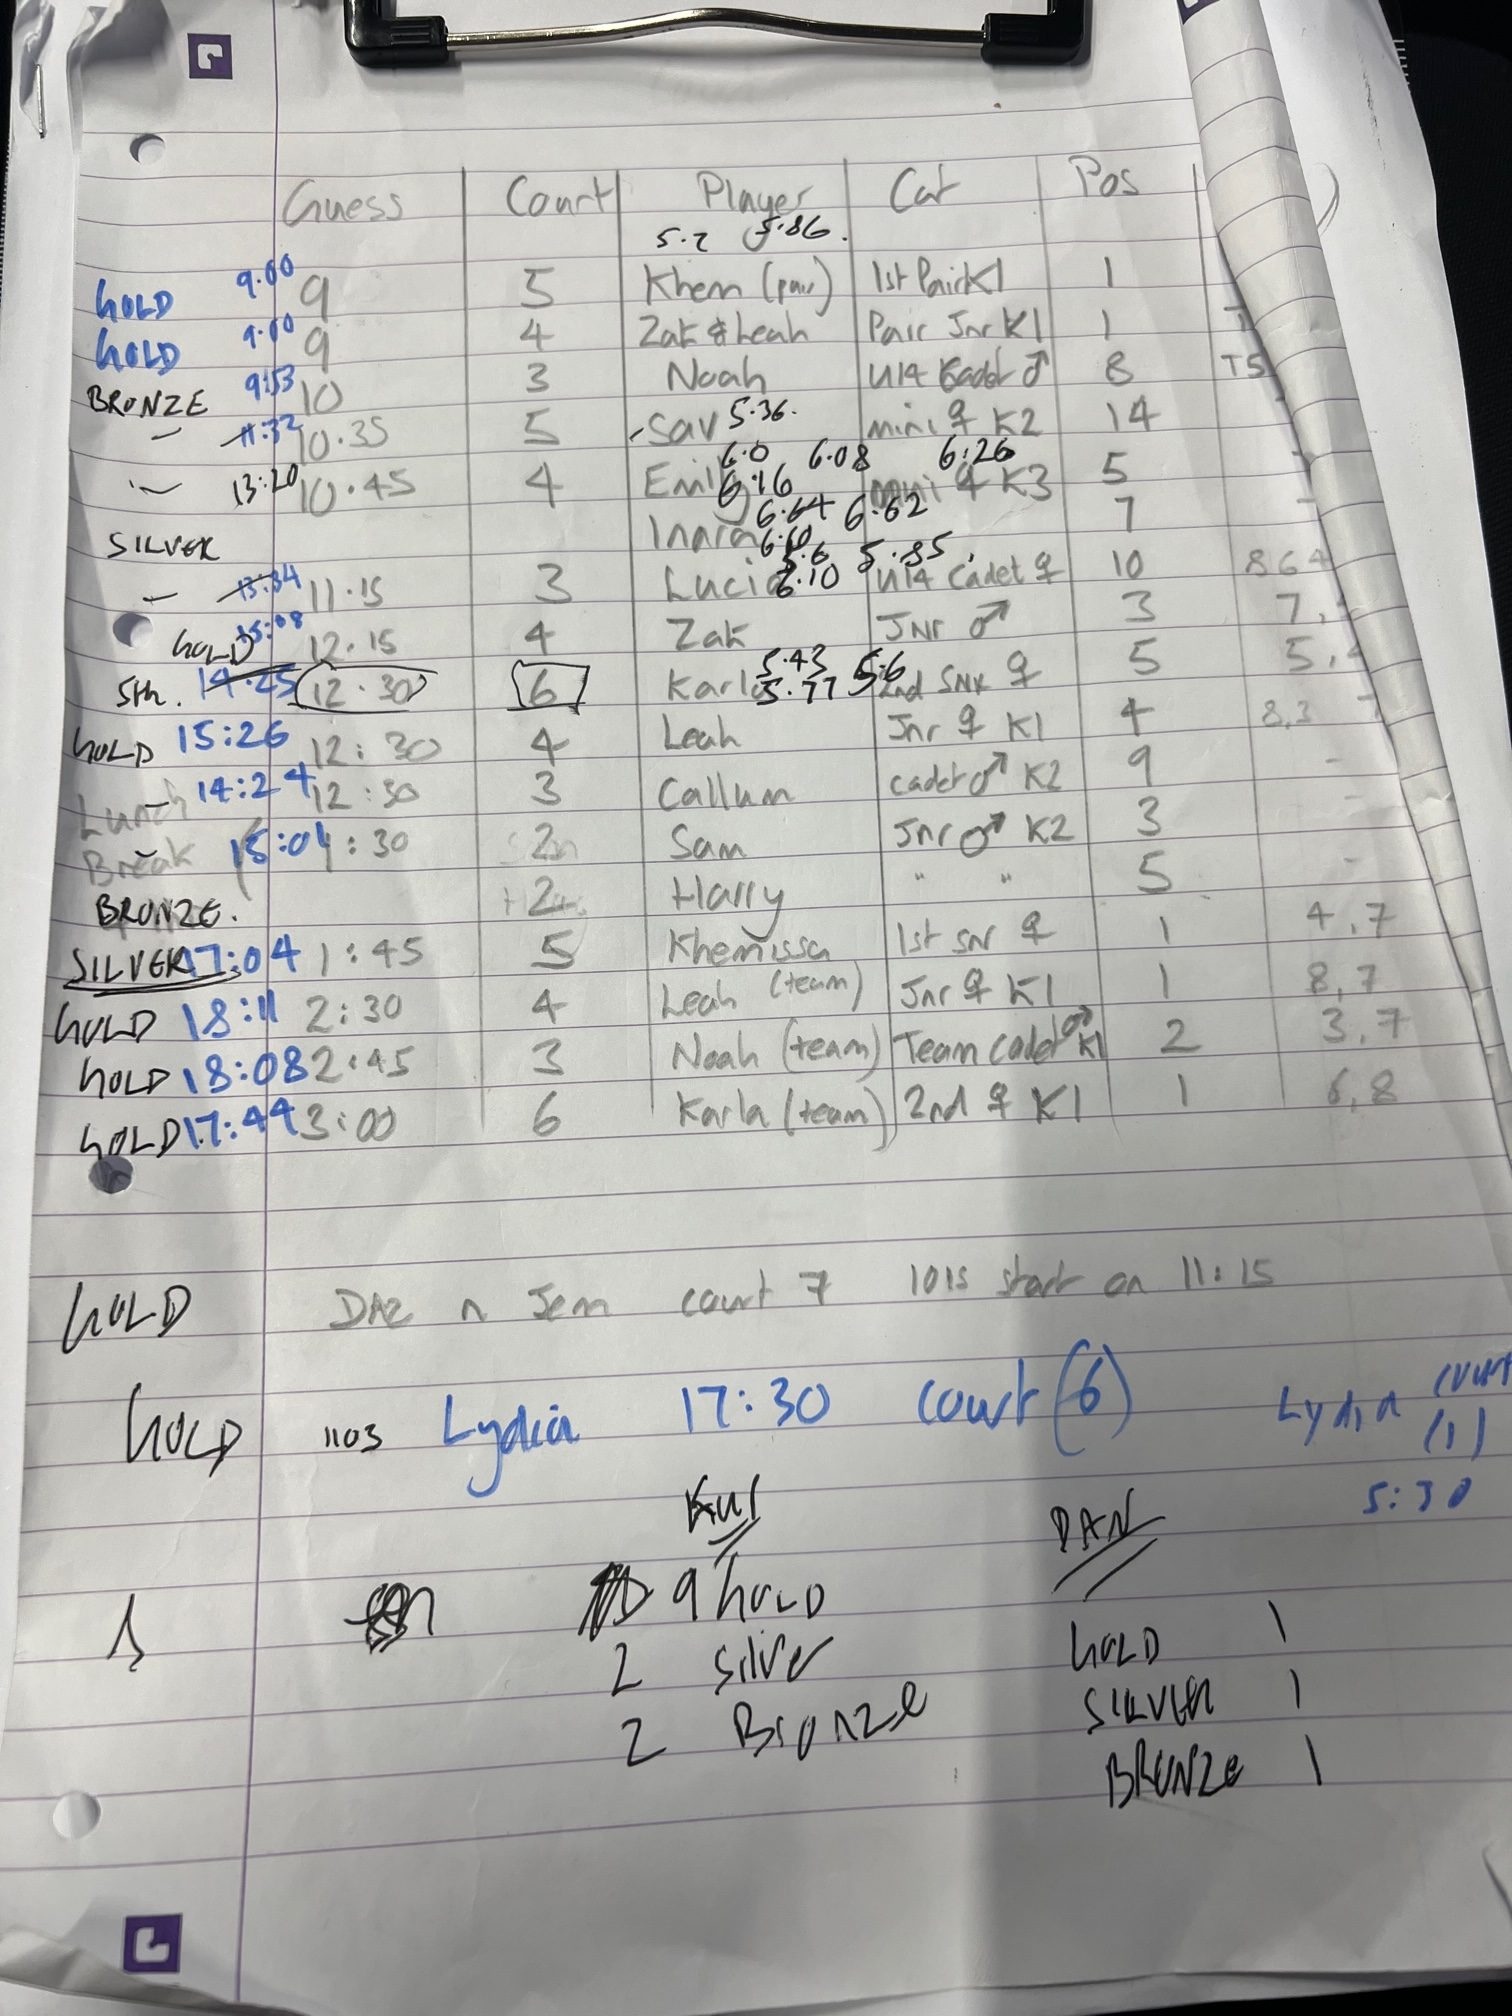 Guess Court Player Cat Pos
5.2 5.86.
GOLD 9.00 9 5 Khem (pair) 1st Pair K1 1
GOLD 9.00 9 4 Zak & Leah Pair Jnr K1 1
BRONZE 9:53 10 3 Noah U14 Cadet ♂ 8 T5
- 11:32 10.35 5 Sav 5.36. mini ♀ K2 14
6.0 6.08 6:26
- 13:20 10.45 4 Emily 6.16 mini ♀ K3 5
6.64 6.62
SILVER Inara 6.10 7
5.6 5.85.
- 13:34 11.15 3 Lucia 6.10 U14 Cadet ♀ 10 8 6 4
GOLD 15:08 12.15 4 Zak JNr ♂ 3 7,
5.43 5.6
5th. 14.25 12.30 6 Karla 5.77 2nd SNR ♀ 5 5,
GOLD 15:26 12:30 4 Leah Jnr ♀ K1 4 8,3
Lunch - 14:24 12:30 3 Callum cadet ♂ K2 9 -
Break - 15:04 1:30 2 Sam Jnr ♂ K2 3 -
BRONZE. 2 Harry " " 5 -
SILVER 17:04 1:45 5 Khemissa 1st SNr ♀ 1 4,7
GOLD 18:11 2:30 4 Leah (team) Jnr ♀ K1 1 8,7
GOLD 18:08 2:45 3 Noah (team) Team cadet ♂ K1 2 3,7
GOLD 17:44 3:00 6 Karla (team) 2nd ♀ K1 1 6,8
GOLD DAZ n Jem court 7 1015 start on 11:15
GOLD 1103 Lydia 17:30 court (6) Lydia court (1)
5:30
KUI DAN
9 GOLD
2 Silver GOLD 1
2 Bronze SILVER 1
BRONZE 1